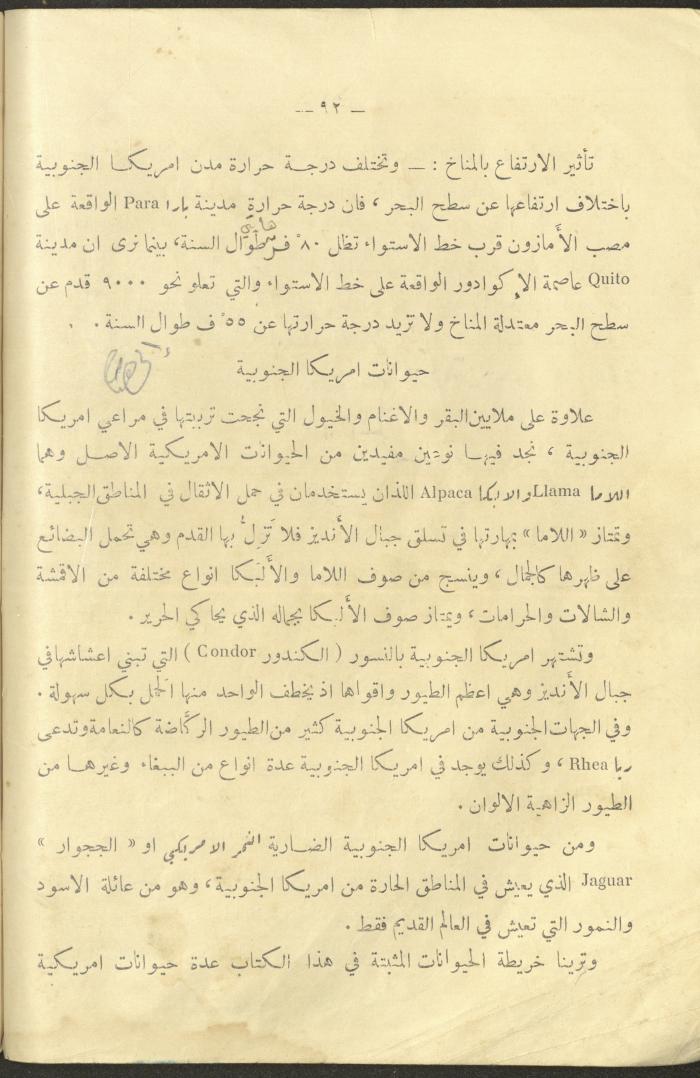 — ٩٢ —
تأثير الارتفاع بالمناخ : — وتختلف درجة حرارة مدن امريكا الجنوبية
باختلاف ارتفاعها عن سطح البحر ، فان درجة حرارة مدينة بارا Para الواقعة على
مصب الأمازون قرب خط الاستواء تظل ٨٠° ف طوال السنة، بينما نرى ان مدينة
Quito عاصمة الإكوادور الواقعة على خط الاستواء والتي تعلو نحو ٩٠٠٠ قدم عن
سطح البحر معتدلة المناخ ولا تزيد درجة حرارتها عن ٥٥° ف طوال السنة .
حيوانات امريكا الجنوبية
علاوة على ملايين البقر والاغنام والخيول التي نجحت تربيتها في مراعي امريكا
الجنوبية ، نجد فيها نوعين مفيدين من الحيوانات الامريكية الاصل وهما
اللاما Llama والابكا Alpaca اللذان يستخدمان في حمل الاثقال في المناطق الجبلية،
وتمتاز « اللاما » بمهارتها في تسلق جبال الأنديز فلا تَزِلُّ بها القدم وهي تحمل البضائع
على ظهرها كالجمال ، وينسج من صوف اللاما والألبكا انواع مختلفة من الاقمشة
والشالات والحرامات ، ويمتاز صوف الألبكا بجماله الذي يحاكي الحرير .
وتشتهر امريكا الجنوبية بالنسور ( الكندور Condor ) التي تبني اعشاشها في
جبال الأنديز وهي اعظم الطيور واقواها اذ يخطف الواحد منها الحمل بكل سهولة .
وفي الجهات الجنوبية من امريكا الجنوبية كثير من الطيور الركّاضة كالنعامة وتدعى
ريا Rhea ، وكذلك يوجد في امريكا الجنوبية عدة انواع من الببغاء وغيرها من
الطيور الزاهية الالوان .
ومن حيوانات امريكا الجنوبية الضارية النمر الامريكي او « الججوار »
Jaguar الذي يعيش في المناطق الحارة من امريكا الجنوبية ، وهو من عائلة الاسود
والنمور التي تعيش في العالم القديم فقط .
وترينا خريطة الحيوانات المثبتة في هذا الكتاب عدة حيوانات امريكية